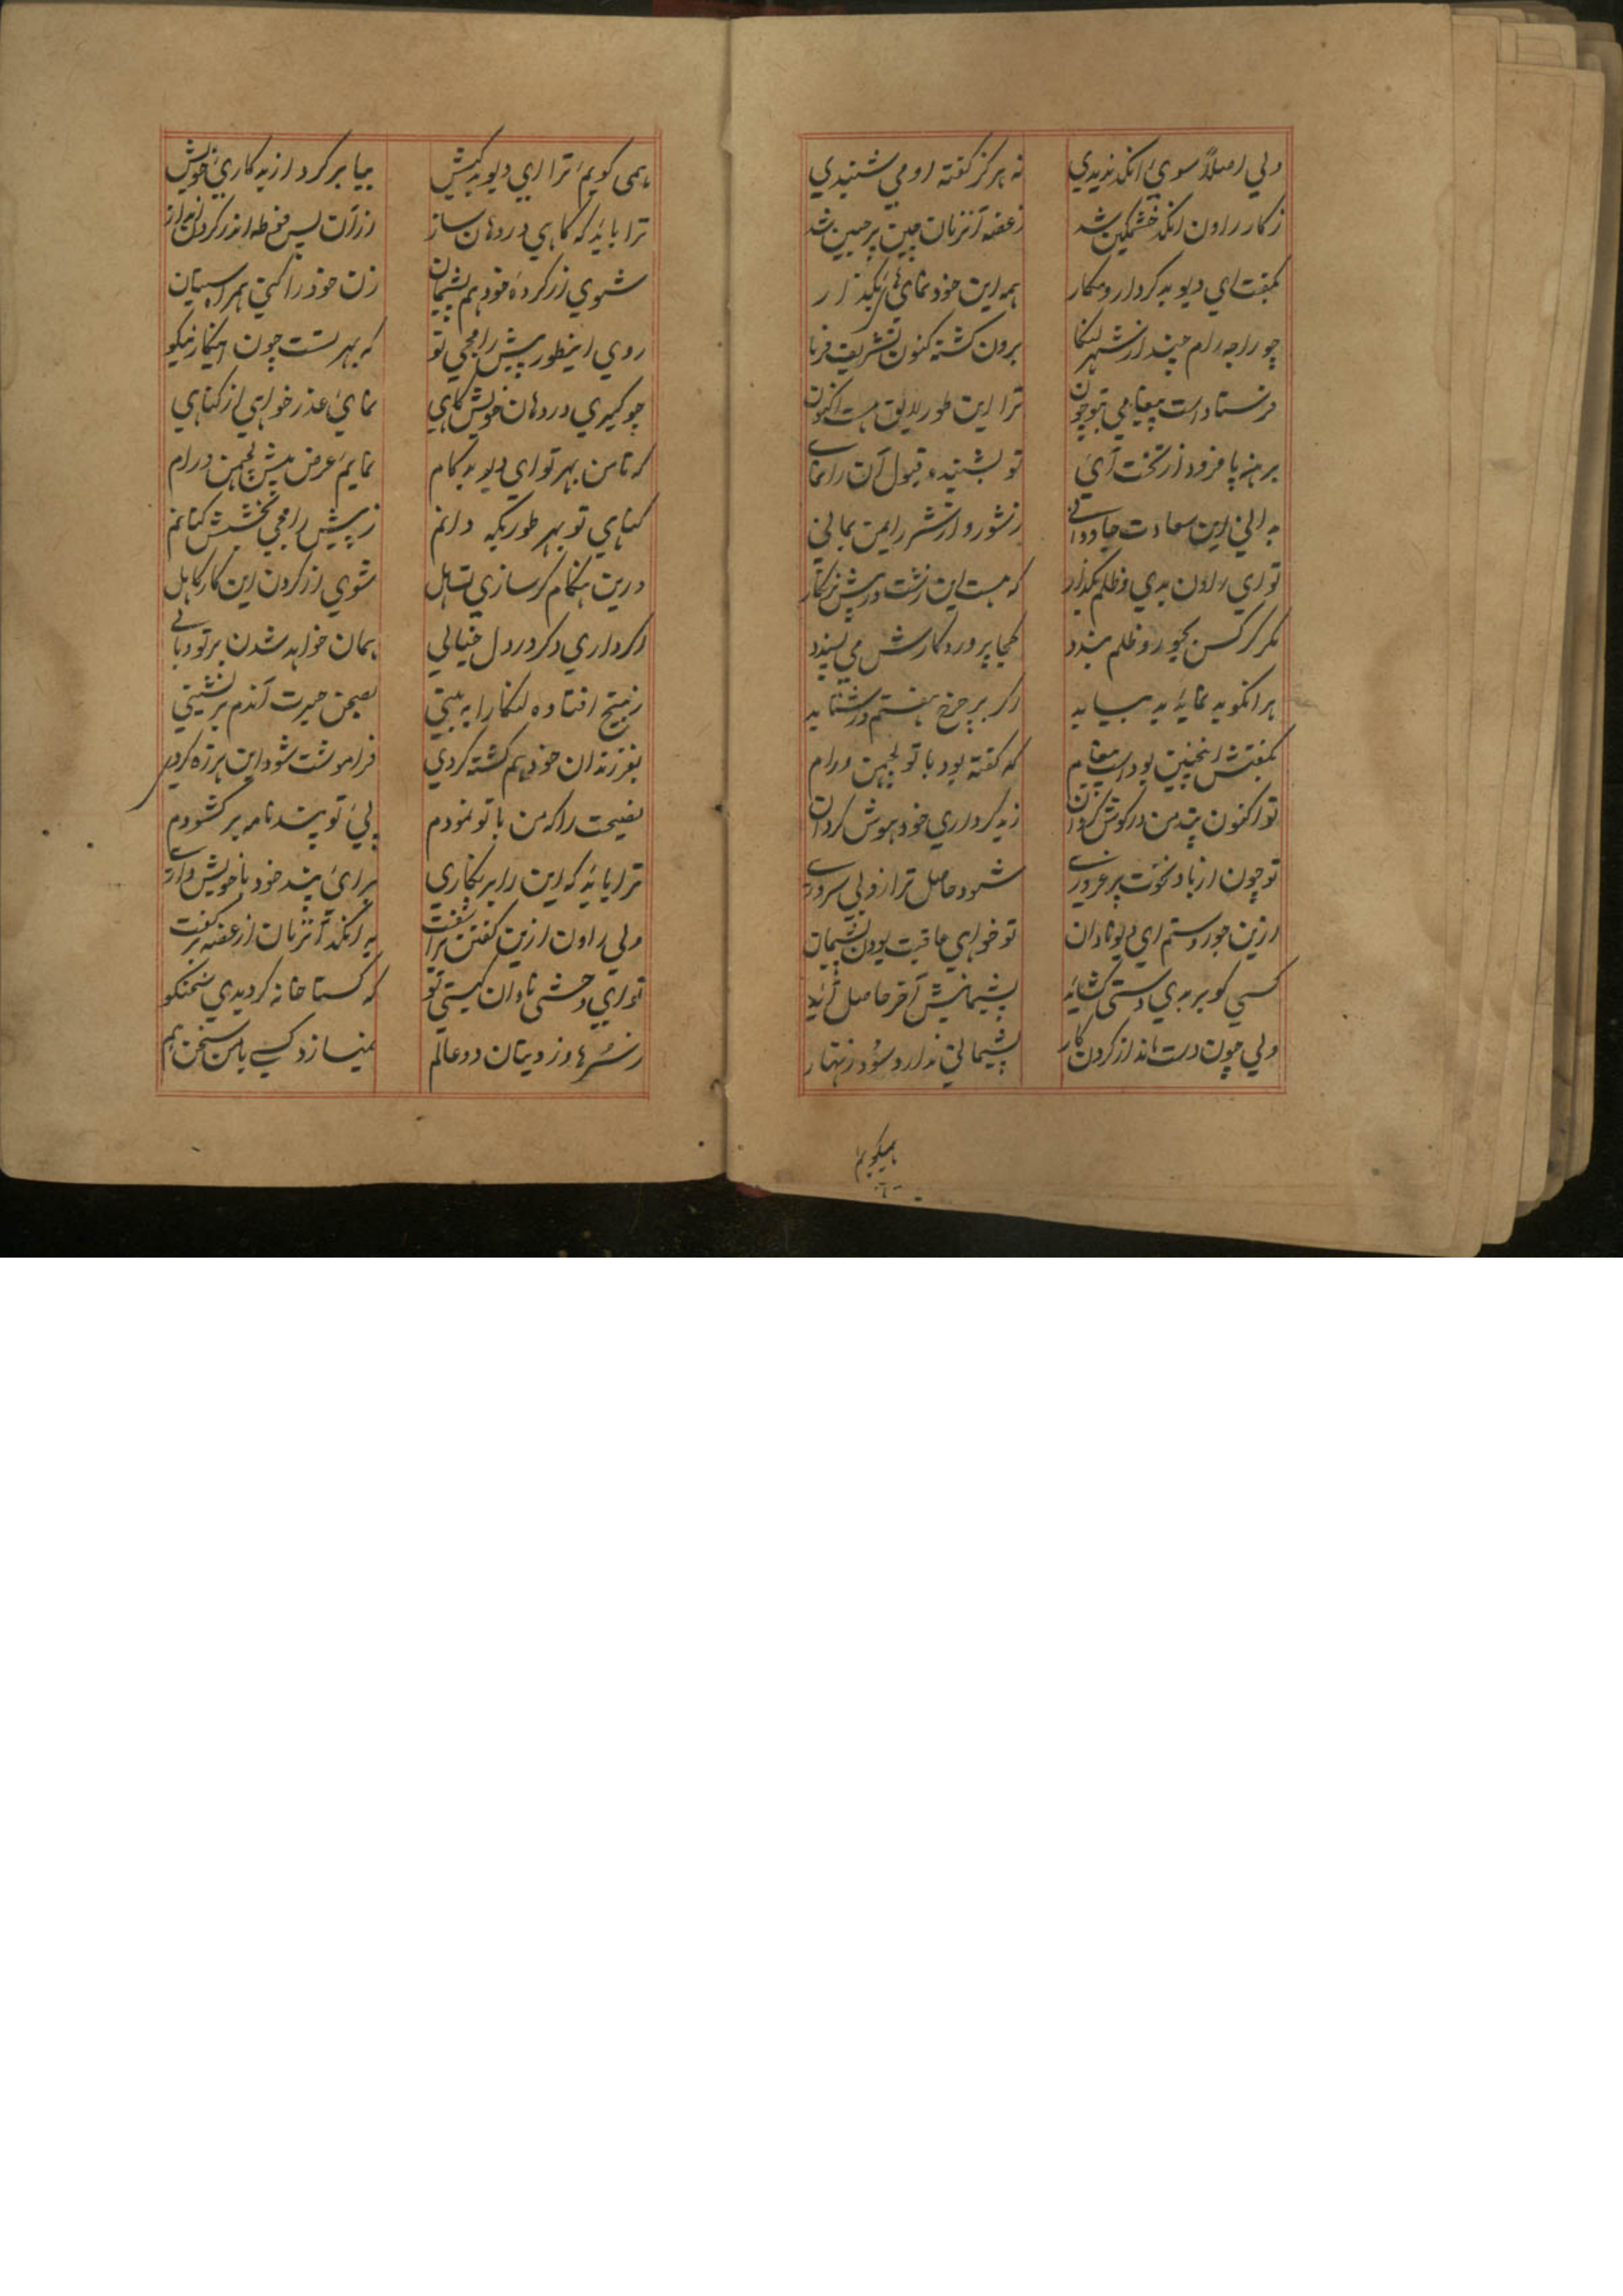 ولي اصلاً سوي انکد نديدي
نه هرکز کفته او مي شنيدي
ز کار راون انکد خشمکين شد
ز غصه آنزمان چين بر جبين شد
بکفت اي ديو بدکردار و مکار
همه اين خود نمائي‌ها بکذار
چو راجه رام چند از شهر لنکا
برون کشته کنون تشريف فرما
فرستاد است پيغامي بتو چون
ترا اين طور لايق هست اکنون
برهنه پا فرود از تخت آئ
تو بشنيده قبول آن را نمائ
بداني اين سعادت جاوداني
ز شور و از شر ايمن بماني
تو اي راون بدي و ظلم بکذار
که هست اين زشت در پيش نکوکار
مکر کر کس بجور و ظلم بندد
کجا پروردکارش مي پسندد
هر انکو بد نمايد بد بيابد
اکر بر چرخ هفتم در شتابد
بکفتش اينچنين بود است پيغام
که کفته بود با تو لچمن و رام
تو اکنون پند من در کوش کردان
ز بدکرداري خود هوش کردان
تو چون از باد نخوت پر غروري
شود حاصل ترا زو بي سروري
ازين جور و ستم اي ديو نادان
تو خواهي عاقبت بودن پشيمان
کسي کو بر بدي دستي کشايد
پشيمانيش آخر حاصل آيد
ولي چون دست انداز کردن کار
پشيماني ندارد سود زنهار
هميکويم
همي کويم ترا اي ديو بدکيش
بيا برکرد از بدکاري خويش
ترا بايد که کاهي در دهان ساز
از آن پس فوطه اندر کردن انداز
شوي از کرده خود هم پشيمان
زن خود را کني همراه سيتان
روي اينطور پيش رامجي تو
که بهر تست چون اينکار نيکو
چو کيري در دهان خويش کاهي
نمائ عذر خواهي از کناهي
که تا من بهر تو اي ديو بدکام
نمايم عرض پيش لچمن و رام
کناهي تو بهر طوريکه دانم
ز پيش رامجي بخشش کنانم
درين هنکام کر سازي تساهل
شوي از کردن اين کار کاهل
اکر داري دکر در دل خيالي
همان خواهد شدن بر تو وبالي
ز بيخ افتاده لنکا را به بيني
بصحن حيرت آندم برنشيني
بفرزندان خود هم کشته کردي
فراموشت شود اين هرزه کردي
نصيحت را که من با تو نمودم
پي تو پند نامه بر کشودم
ترا بايد که اين را بر بکاري
براي پند خود با خويش داري
ولي راون ازين کفتن براشفت
به انکد آنزمان از غصه برکفت
تو اي وحشي نادان کيستي تو
که کستاخانه کرديدي سخنکو
ز سرها وز ديتان دو عالم
نميسازد کسي با من سخن هم